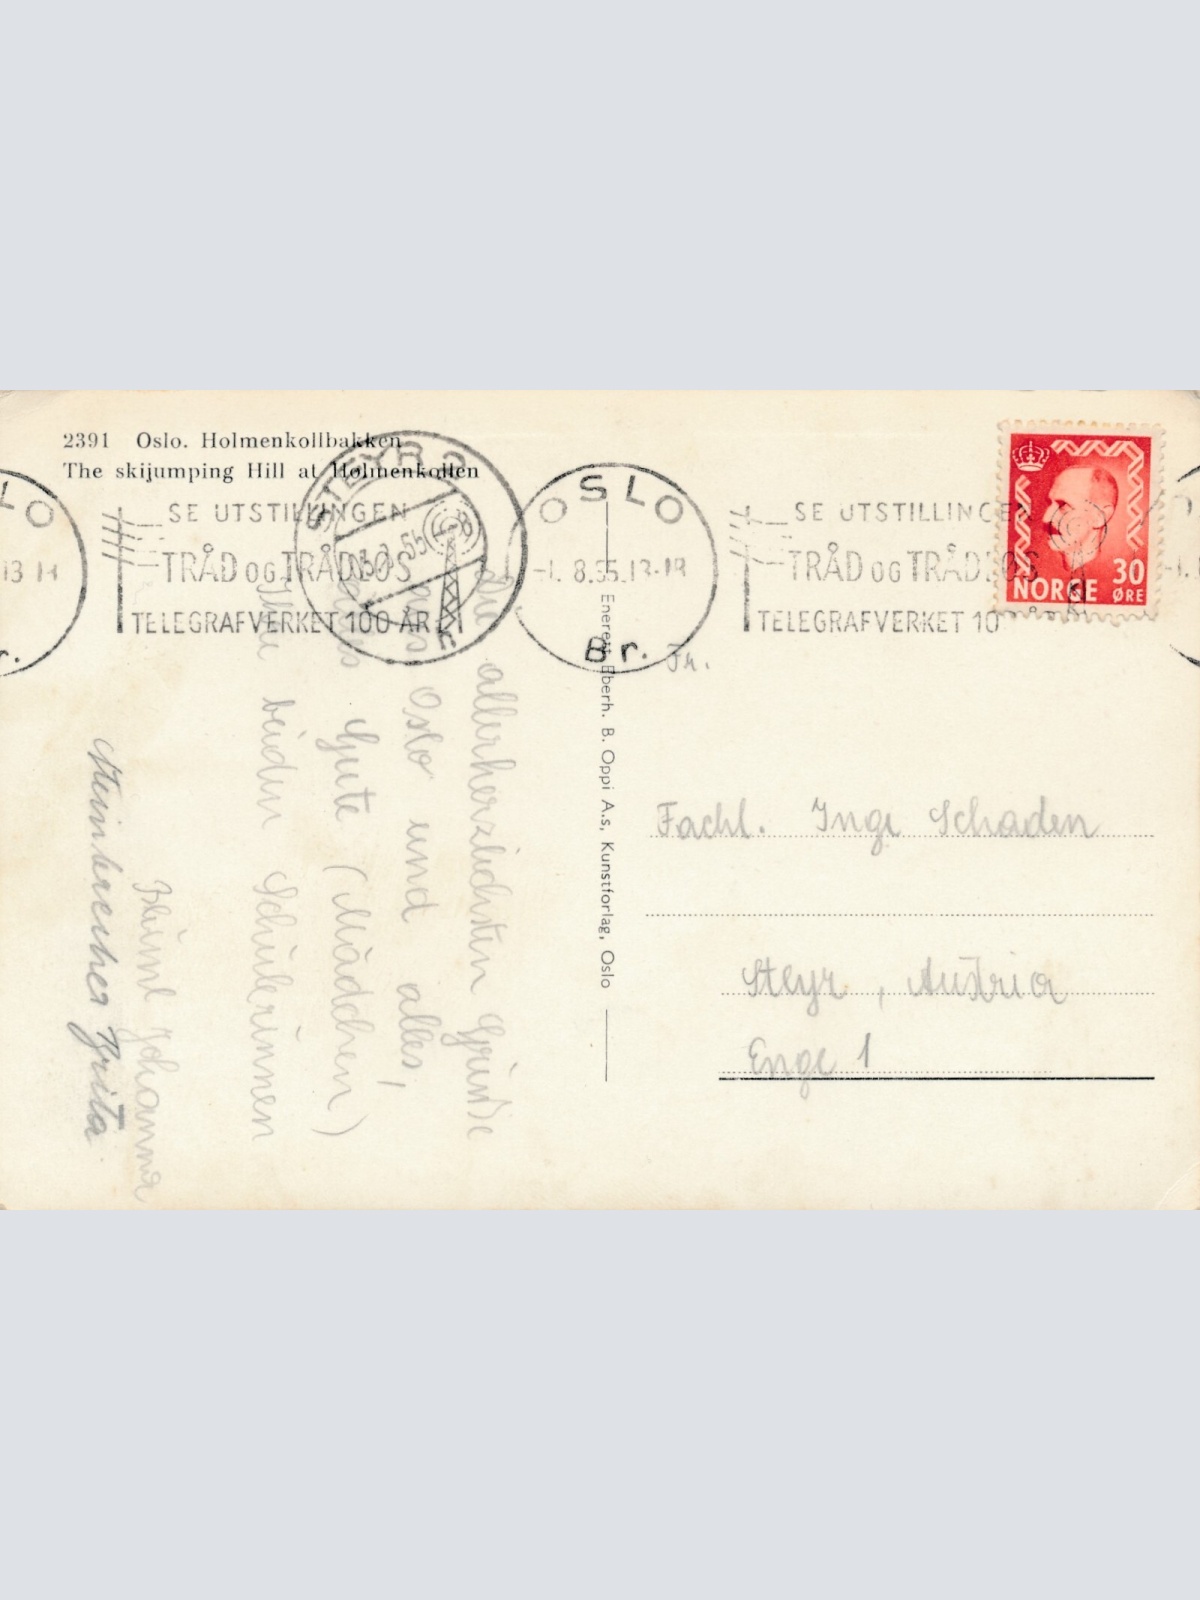 2391 Oslo. Holmenkollbakken
The skijumping Hill at Holmenkollen
STEYR 2
SE UTSTILLINGEN
TRÅD OG TRÅDLØS
TELEGRAFVERKET 100 ÅR
OSLO
-1. 8.55.13-19
Br.
SE UTSTILLINGEN
TRÅD OG TRÅDLØS
TELEGRAFVERKET 10
NORGE 30 ØRE
LO
13
r.
Die allerherzlichsten Grüße
aus Oslo und alles,
alles Gute (Mädchen)
Ihre beiden Schülerinnen
Blüml Johanna
Steinbrecher Grita
Enerett Eberh. B. Oppi A.s, Kunstforlag, Oslo
Fr.
Fachl. Inge Schaden
Steyr, Austria
Enge 1